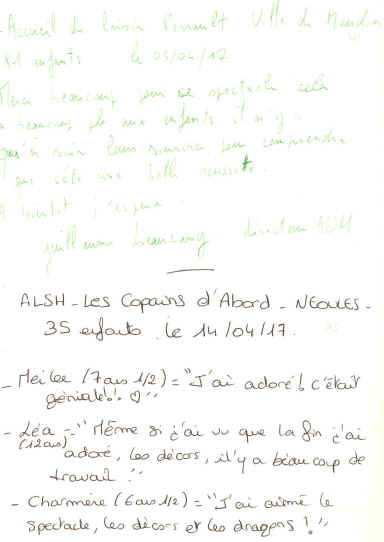 - Accueil de loisir Perrault Ville de Meudon
81 enfants le 05/04/17
Merci beaucoup pour ce spectacle cela
a beaucoup plu aux enfants il n'y a
qu'à voir leurs sourires pour comprendre
que cela une belle réussite.
A bientôt j'espère.
guillaume directeur ALSH
ALSH - Les Copains d'Abord - NEOULES -
35 enfants. le 14/04/17.
- Meilee (7 ans 1/2) = "J'ai adoré! c'était
génial!! ♡"
- Léa = "Même si j'ai vu que la fin j'ai
(12 ans) adoré, les décors, il y a beaucoup de
travail."
- Charmène (6 ans 1/2) = "J'ai aimé le
spectacle, les décors et les dragons !"